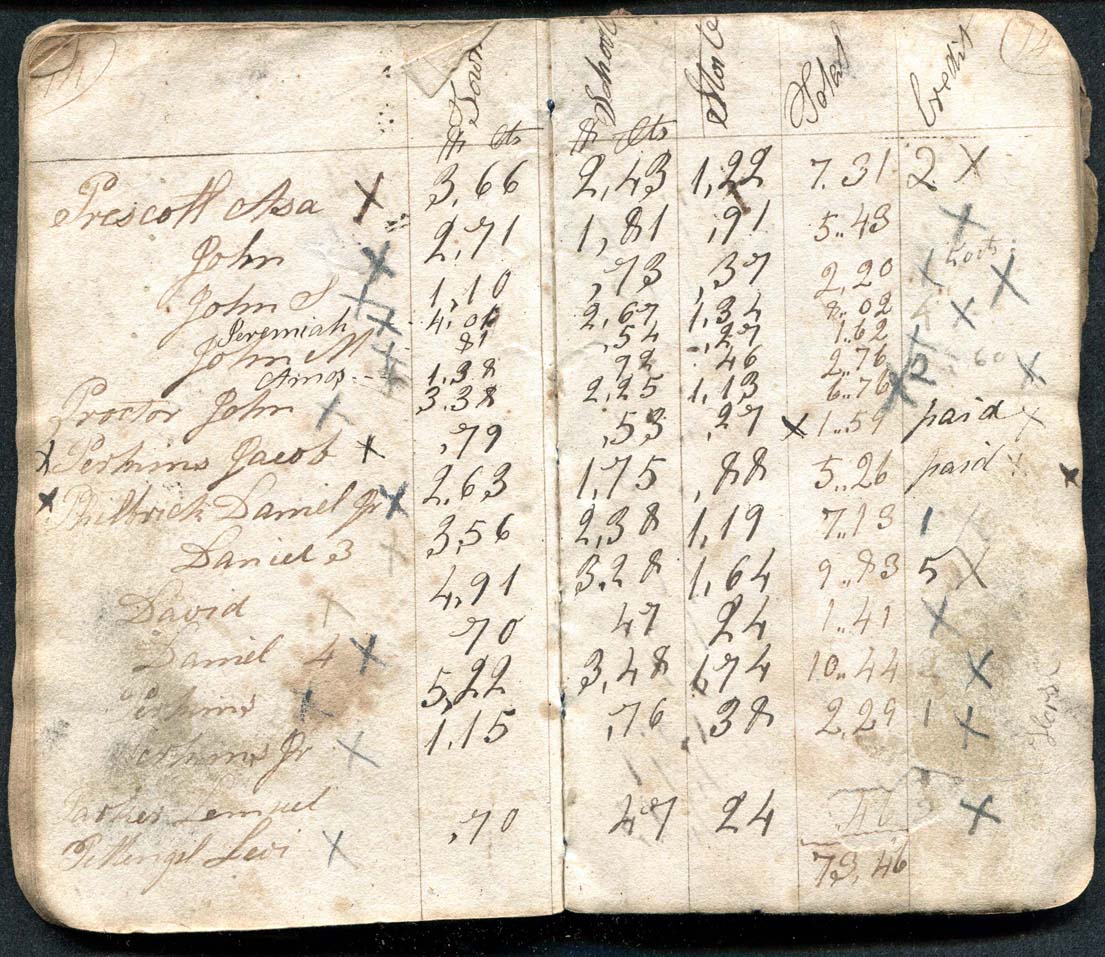 14 14
Town School State Total Credit
$ cts $ cts
Prescott Asa X 3,66 2,43 1,22 7.31 2 X
John X 2,71 1,81 ,91 5..43 X
John S X 1,10 ,73 ,37 2,20 1 X
Jeremiah X 4,01 2,67 1,34 8..02 4 X
John M X 81 ,54 ,27 1.62 X
Amos X 1,38 92 46 2..76 2 60 X
Proctor John X 3,38 2,25 1,13 6..76 X
X Perkins Jacob X ,79 ,53 ,27 X 1..59 paid X
X Philbrick Daniel Jr X 2,63 1,75 ,88 5..26 paid X X
Daniel 3 X 3,56 2,38 1,19 7..13 1
David X 4,91 3.28 1,64 9..83 5 X
Daniel 4 X 70 47 24 1..41 X
Perkins X 5,22 3,48 1,74 10..44 2 X
Perkins Jr X 1,15 ,76 ,38 2,29 1 X
Parker Lemuel
Pettengil Levi X ,70 47 24 X
73,46